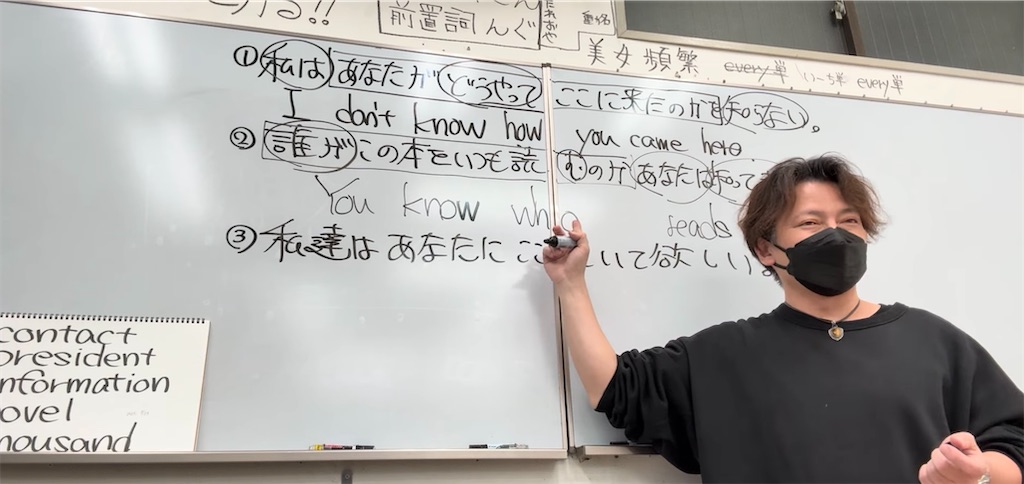 前置詞 んぐ
美女頻繁 every単 いーち単 every単
①私は あなたがどうやって ここに来たのかを知らない。
I don't know how you came here
②誰がこの本をいつも読むのかあなたは知って
You know who reads
③私達はあなたにここ いて欲しい
contact
president
information
novel
thousand